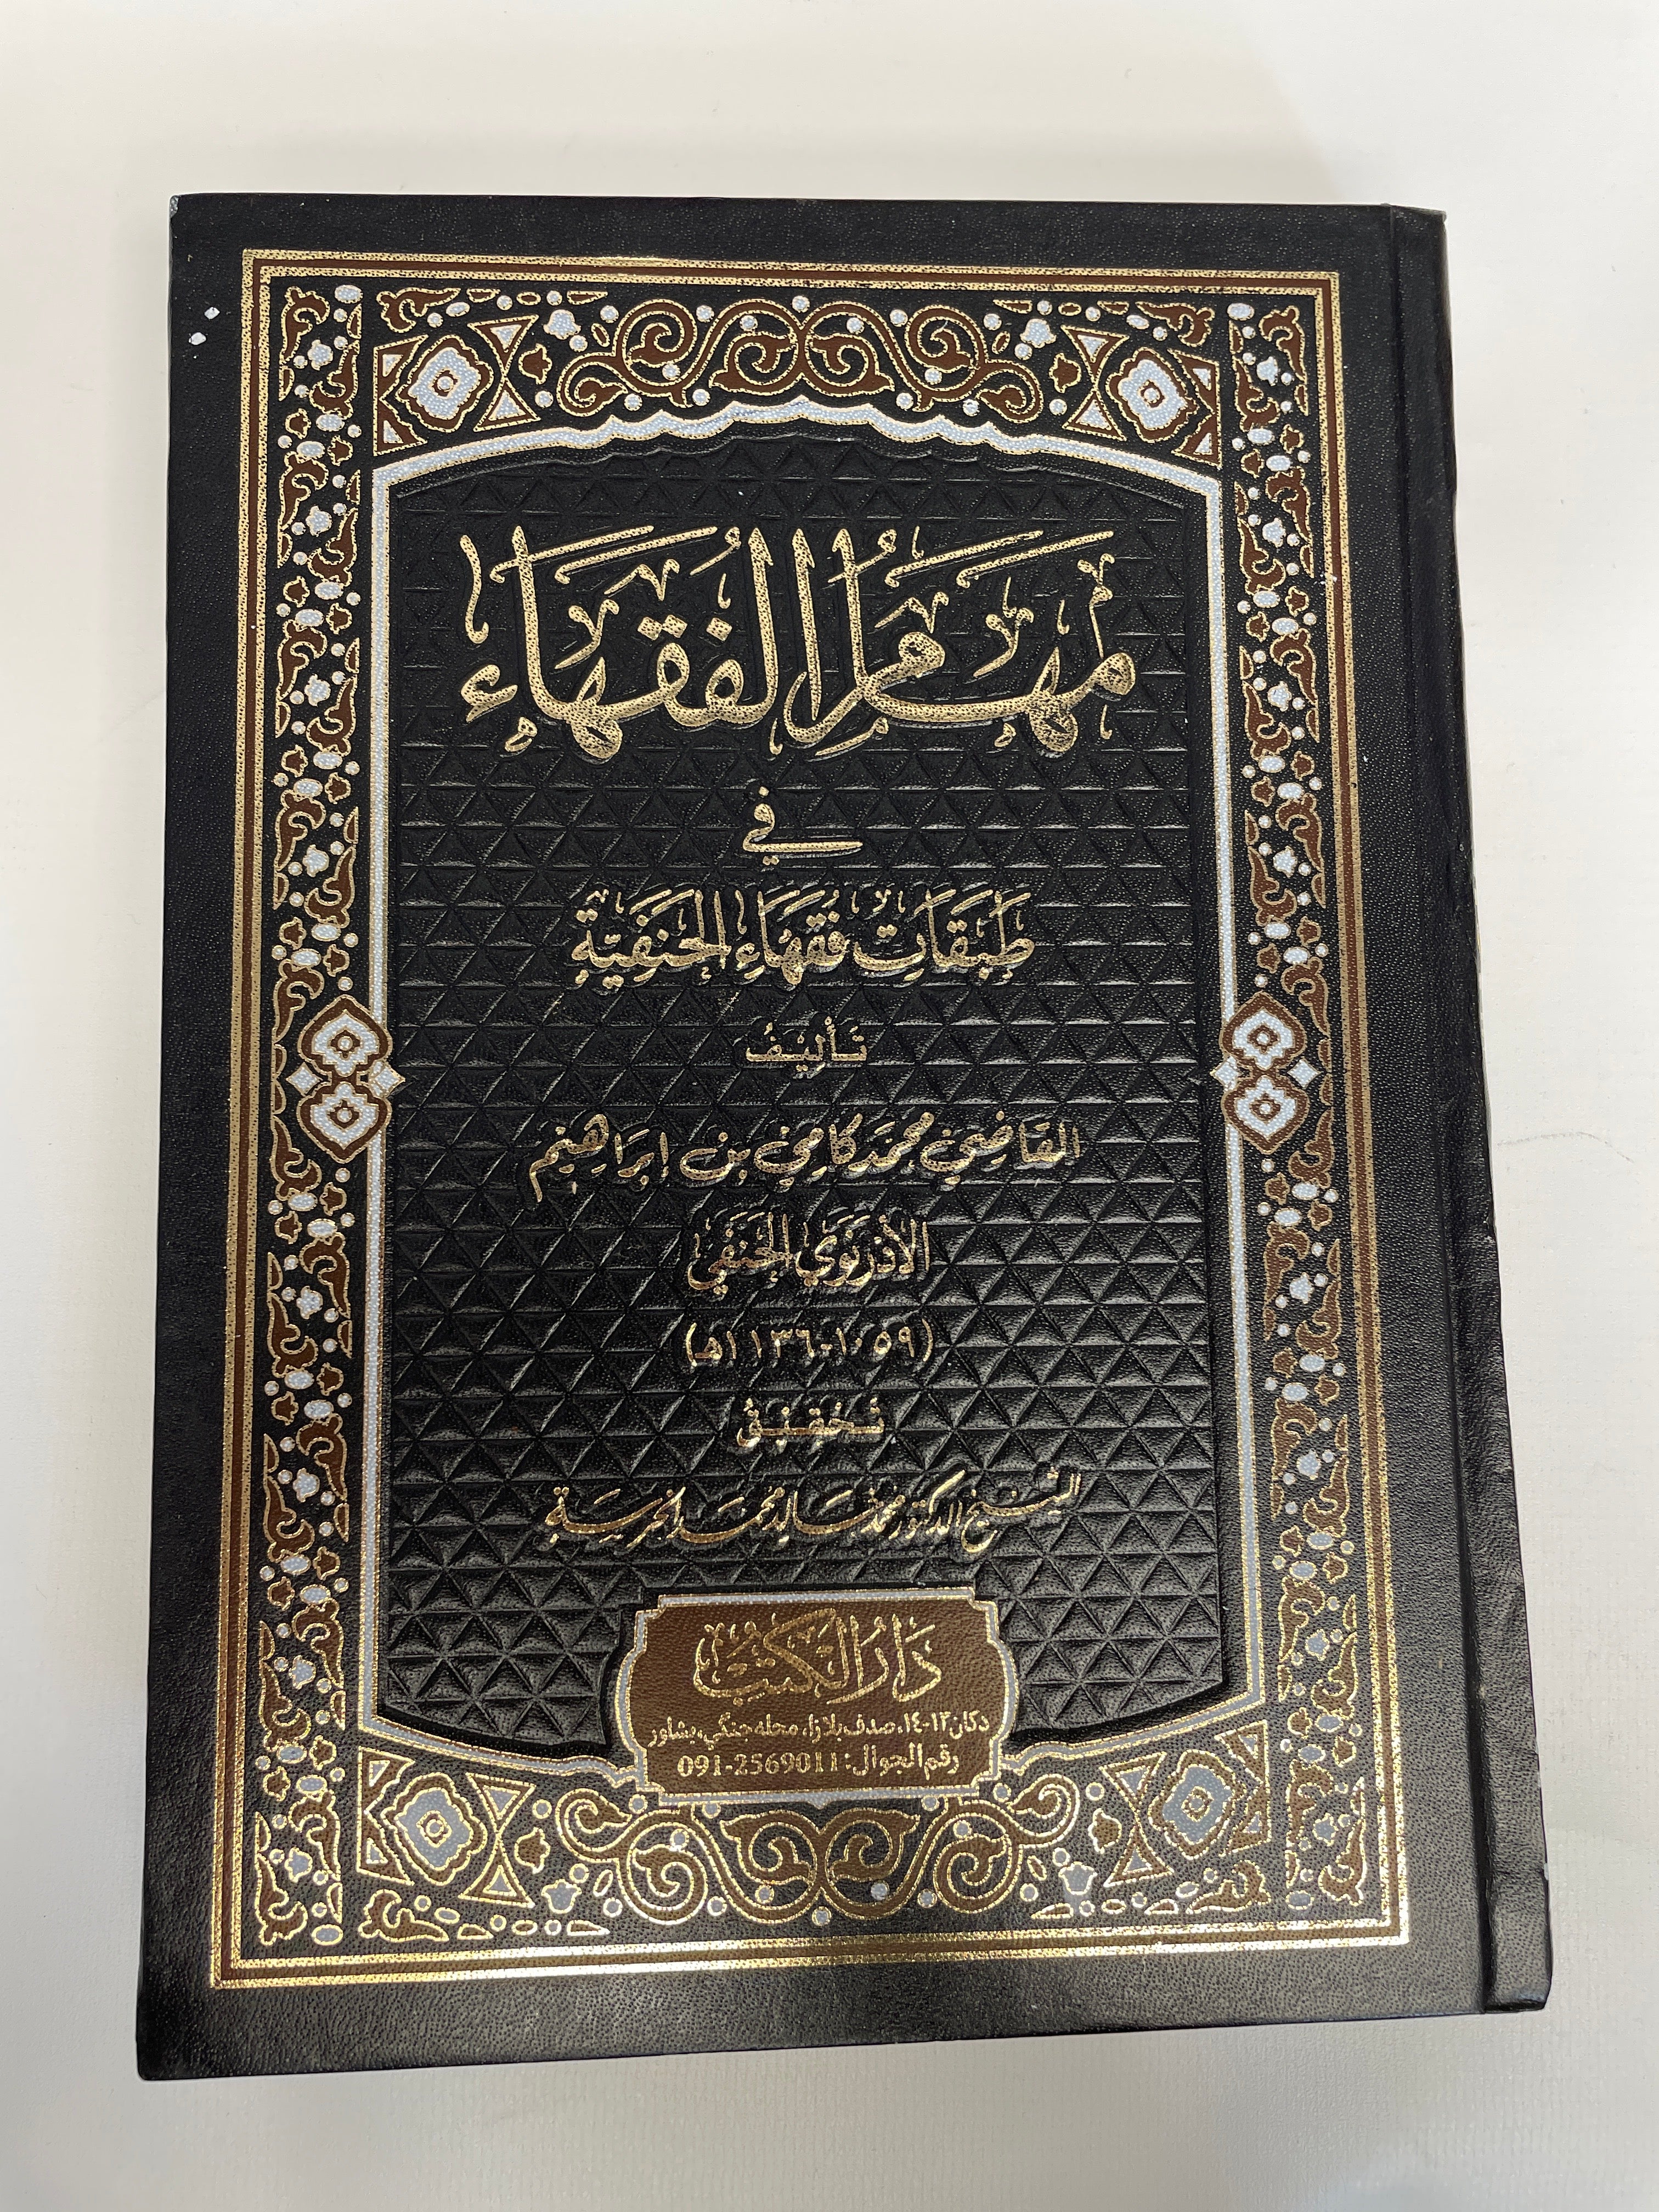 مَهَامُّ الفُقَهَاءِ
في
طَبَقَاتِ فُقَهَاءِ الحَنَفِيَّةِ
تَأليف
القَاضِي مُحَمَّد كَامِي بن إبراهيم
الأدرنوي الحنفي
(١٠٥٩-١١٣٦هـ)
تحقيق
الشيخ الدكتور محمد خالد محمد الخرسة
دَارُ الكُتُب
دكان ١٣-١٤، صدف پلازا، محله جنگي، پشاور
رقم الجوال: 091-2569011